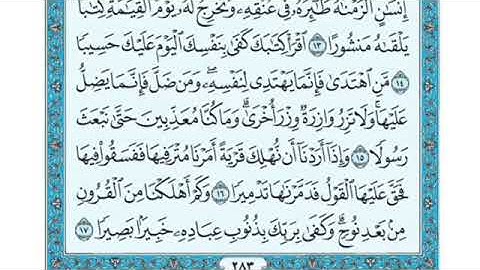 إِنسَٰنٍ أَلْزَمْنَٰهُ طَٰٓئِرَهُۥ فِى عُنُقِهِۦ ۖ وَنُخْرِجُ لَهُۥ يَوْمَ ٱلْقِيَٰمَةِ كِتَٰبًا
يَلْقَىٰهُ مَنشُورًا ١٣ ٱقْرَأْ كِتَٰبَكَ كَفَىٰ بِنَفْسِكَ ٱلْيَوْمَ عَلَيْكَ حَسِيبًا
١٤ مَّنِ ٱهْتَدَىٰ فَإِنَّمَا يَهْتَدِى لِنَفْسِهِۦ ۖ وَمَن ضَلَّ فَإِنَّمَا يَضِلُّ
عَلَيْهَا ۚ وَلَا تَزِرُ وَازِرَةٌ وِزْرَ أُخْرَىٰ ۗ وَمَا كُنَّا مُعَذِّبِينَ حَتَّىٰ نَبْعَثَ
رَسُولًا ١٥ وَإِذَآ أَرَدْنَآ أَن نُّهْلِكَ قَرْيَةً أَمَرْنَا مُتْرَفِيهَا فَفَسَقُوا۟ فِيهَا
فَحَقَّ عَلَيْهَا ٱلْقَوْلُ فَدَمَّرْنَٰهَا تَدْمِيرًا ١٦ وَكَمْ أَهْلَكْنَا مِنَ ٱلْقُرُونِ
مِنۢ بَعْدِ نُوحٍ ۗ وَكَفَىٰ بِرَبِّكَ بِذُنُوبِ عِبَادِهِۦ خَبِيرًۢا بَصِيرًا ١٧
٢٨٣